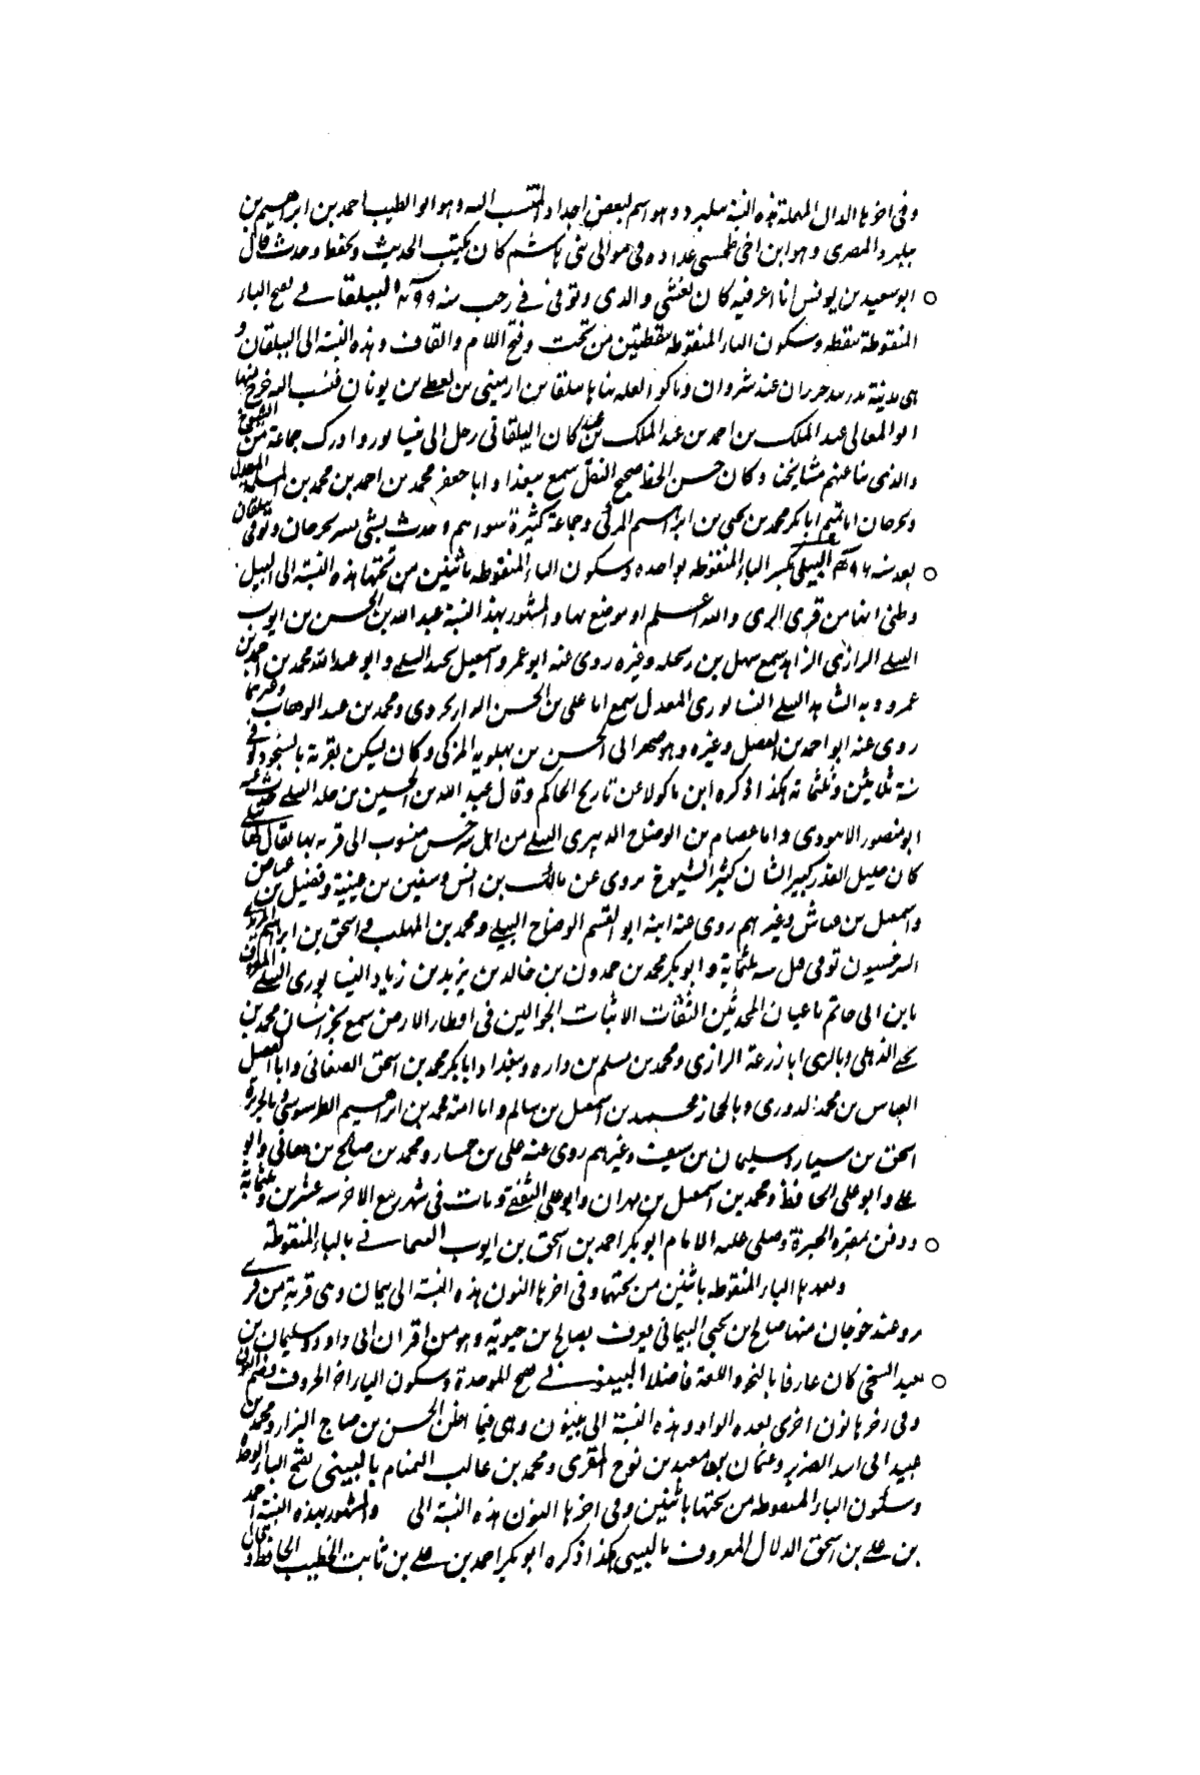 وفى اخرها الدال المهملة هذه النسبة بيلبرد وهو اسم لبعض اجداد المنتسب اليه وهو ابو الطيب احمد بن ابراهيم بن
بيلبرد المصرى وهو ابن اخى طخشى عداده فى موالى بنى هاشم كان يكتب الحديث ويحفظ وحدث قال
ابو سعيد بن يونس انا اعرفه كان يغشى والدى وتوفى فى رجب سنه البيلقانى بفتح الباء
المنقوطة بنقطه وسكون الياء المنقوطه بنقطتين من تحت وفتح اللام والقاف وهذه النسبة الى البيلقان و
هى مدينة بدربند خزران عند شروان بناها بيلقان بن ارمينى بن لنطى بن يونان فنسب اليه خرج منها
ابو المعالى عبد الملك بن احمد بن عبد الملك بن كان البيلقانى رحل الى نيسابور وادرك جماعة من الشيوخ
والذى بنا عنهم مشايخنا وكان حسن الخط صحيح النقل سمع ببغداد ابا جعفر محمد بن احمد بن محمد بن المسلمة المعدل
وبجرجان ابا تميم ابا بكر محمد بن يحيى بن ابراهيم المزكى وجماعة كثيرة سواهم وحدث بشى يسير بجرجان وتوفى ببيلقان
بعد سنه البيلى بكسر الباء المنقوطه بواحده وسكون الياء المنقوطه باثنتين من تحتها هذه النسبة الى البيل
وظنى انها من قرى الرى والله اعلم او موضع بها والمشهور بهذا النسبة عبد الله بن الحسن بن ايوب
البيلى الرازى الزاهد سمع سهل بن زنجله وغيره روى عنه ابو عمرو اسمعيل بن نجيد السلمى وابو عبد الله محمد بن احمد بن
عمرويه الشاهد البيلى النيسابورى المعدل سمع اباعلى بن الحسن الدارابجردى ومحمد بن عبد الوهاب وغيرهما
روى عنه ابو احمد بن الفضل وغيره وهو صهر ابى الحسن بن بهلويه المزكى وكان يسكن بقرية بالسنجرد توفى
سنة ثلاثين وثلثمائه هكذا ذكره ابن ماكولا عن تاريخ الحاكم وقال عبد الله بن الحسين بن البيلى حدث عنه
ابو منصور الابيوردى واما عصام بن الوضاح الزبيرى البيلى من اهل سرخس منسوب الى قريه بها يقال لها
كان جليل القدر كبير الشان كثير الشيوخ يروى عن مالك بن انس وسفين بن عيينة وفضيل بن عياض
واسمعيل بن عياش وغيرهم روى عنه ابنه ابو القسم الوضاح البيلى ومحمد بن المهلب واسحق بن ابراهيم
السرخسيون توفى قبل سنه ثلثماية وابو بكر محمد بن حمدون بن خالد بن يزيد بن زياد النيسابورى البيلى المعروف
بابن ابى حاتم باعيان المحدثين الثقات الاثبات الجوالين فى اقطار الارض سمع بخراسان محمد بن
يحيى الذهلى وبالرى ابا زرعة الرازى ومحمد بن مسلم بن واره وببغداد ابا بكر محمد بن اسحق الصغانى وابا الفضل
العباس بن محمد الدورى وبالحجاز محمد بن اسمعيل بن سالم وابا امية محمد بن ابراهيم الطرسوسى وبالجزيرة
اسحق بن سيار وسليمان بن سيف وغيرهم روى عنه على بن حمشاد ومحمد بن صالح بن هانى وابو
على وابو على الحافظ ومحمد بن اسمعيل بن مهران وابو على الثقفى ومات فى شهر ربيع الاخر سنه عشرين وثلثماية
ودفن بمقبرة الحيرة وصلى عليه الامام ابو بكر احمد بن اسحق بن ايوب البيمانى بالباء المنقوطة
وبعدها الياء المنقوطه باثنين من تحتها وفى اخرها النون هذه النسبة الى بيمان وهى قرية من قرى
مرو عند خوجان منها صالح بن يحيى البيمانى يعرف بصالح بن حيوية وهو من اقران ابى داود سليمان بن
معبد السنجى كان عارفا بالنحو واللغة فاضلا البينونى بفتح الموحدة وسكون الياء اخر الحروف وضم النون
وفى اخرها نون اخرى بعده الواو وهذه النسبة الى بينون وهى فيما اظن الحسن بن صاحب البزار ومحمد بن
عبيد ابى اسد الضرير وعثمان بن معبد بن نوح المقرى ومحمد بن غالب التمتام بالبينى بفتح الباء الموحدة
وسكون الياء المنقوطه من تحتها باثنين وفى اخرها النون هذه النسبة الى والمشهور بهذه النسبة احمد
بن على بن اسحق الدلال المعروف بالبينى هكذا ذكره ابو بكر احمد بن على بن ثابت الخطيب الحافظ وقال